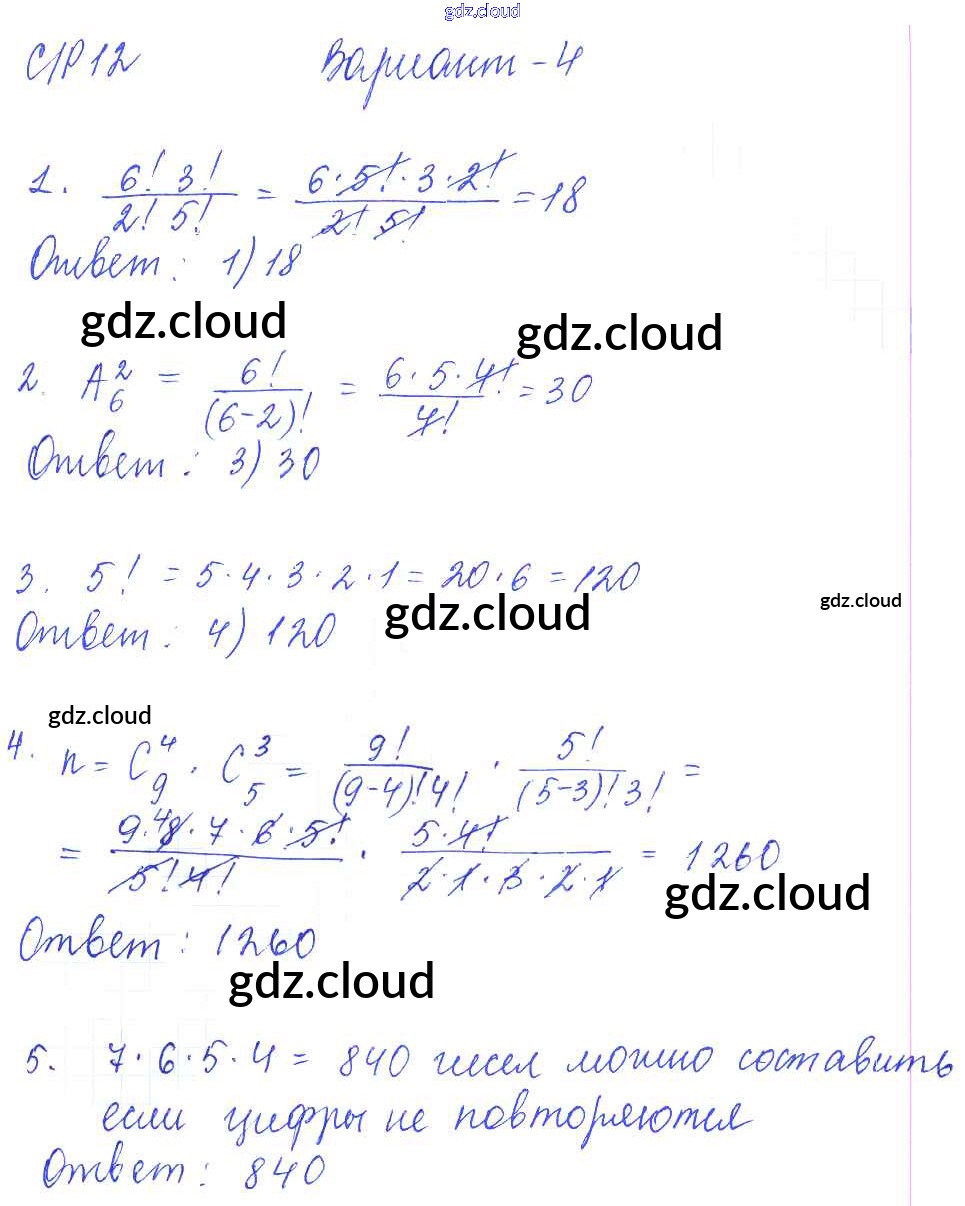 gdz.cloud
С/Р 12 Вариант - 4
1. 6! 3! / 2! 5! = 6 · 5! · 3 · 2! / 2! 5! = 18
Ответ : 1) 18
gdz.cloud gdz.cloud
2. A₆² = 6! / (6-2)! = 6 · 5 · 4! / 4! = 30
Ответ : 3) 30
3. 5! = 5 · 4 · 3 · 2 · 1 = 20 · 6 = 120
gdz.cloud gdz.cloud
Ответ : 4) 120
gdz.cloud
4. n = C₉⁴ · C₅³ = 9! / (9-4)! 4! · 5! / (5-3)! 3! =
= 9 · ⁴8 · 7 · 6 · 5! / 5! 4! · 5 · 4! / 2 · 1 · 3 · 2 · 1 = 1260
gdz.cloud
Ответ : 1260
gdz.cloud
5. 7 · 6 · 5 · 4 = 840 чисел можно составить
если цифры не повторяются
Ответ : 840